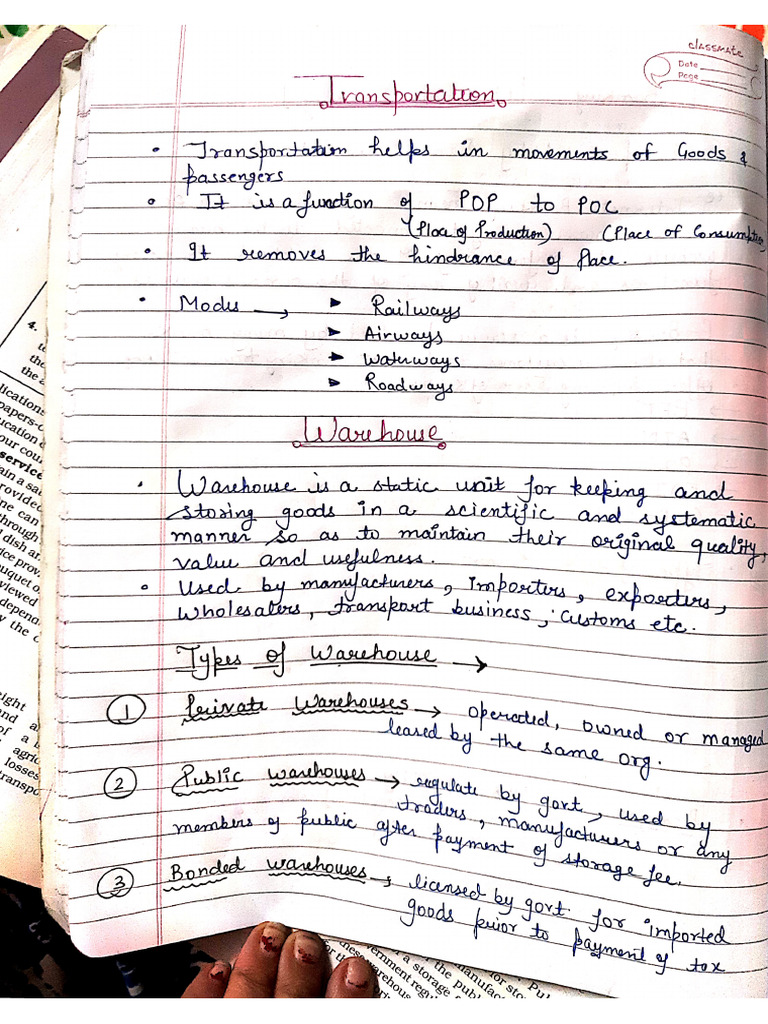 classmate
Date
Page
Transportation
• Transportation helps in movements of Goods &
passengers
• It is a function of POP to POC
(Place of Production) (Place of Consumption)
• It removes the hindrance of Place.
• Modes → ➤ Railways
➤ Airways
➤ Waterways
➤ Roadways
Warehouse
• Warehouse is a static unit for keeping and
storing goods in a scientific and systematic
manner so as to maintain their original quality,
value and usefulness.
• Used by manufacturers, importers, exporters,
wholesalers, transport business, customs etc.
Types of Warehouse →
① Private Warehouses → operated, owned or managed
leased by the same org.
② Public warehouses → regulate by govt, used by
traders, manufacturers or any
members of public after payment of storage fee.
③ Bonded warehouses → licensed by govt for imported
goods prior to payment of tax